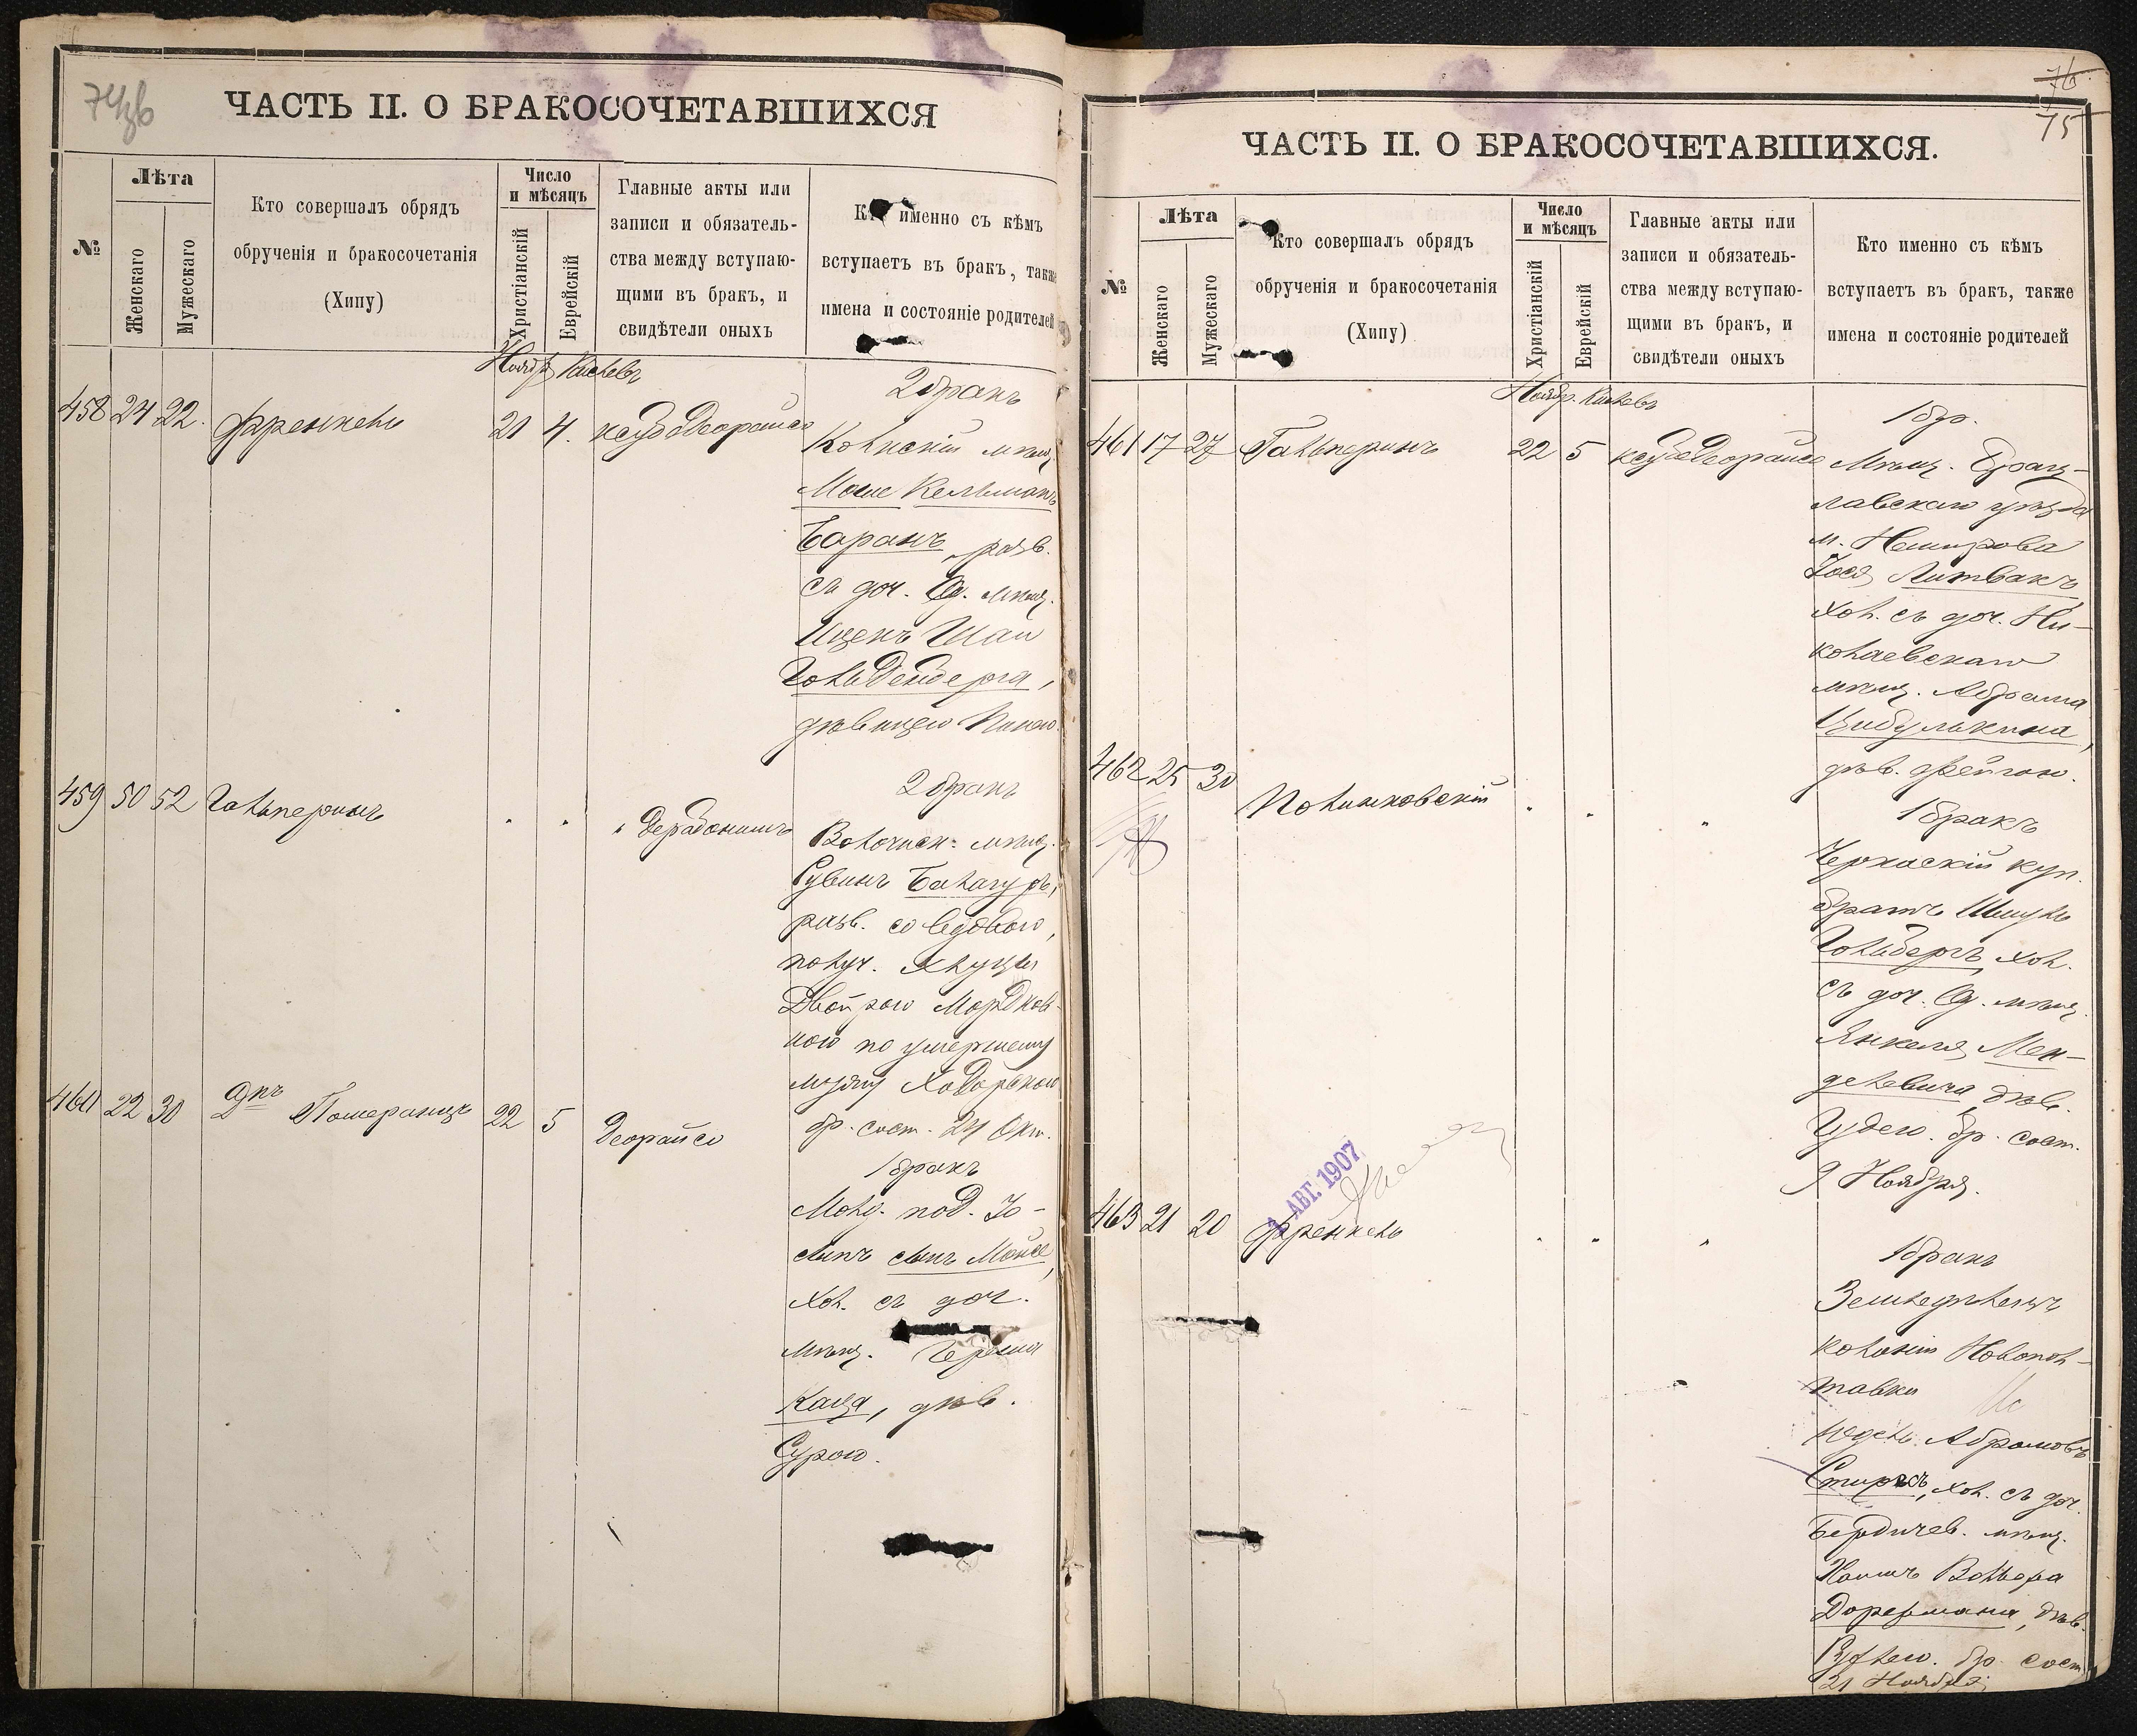 74об
ЧАСТЬ II. О БРАКОСОЧЕТАВШИХСЯ
№
Лѣта
Женскаго
Мужескаго
Кто совершалъ обрядъ
обрученія и бракосочетанія
(Хипу)
Число
и мѣсяцъ
Христіанскій
Еврейскій
Главные акты или
записи и обязатель-
ства между вступаю-
щими въ бракъ, и
свидѣтели оныхъ
именно съ кѣмъ
вступаетъ въ бракъ, также
имена и состояніе родителей
Ноябр. Кислевъ
458 24 22. Френкель 21 4. ксубо Деорайсо
2 бракъ
мѣщ.
Моше Кельманъ
Баранъ, разв.
съ доч. Од. мѣщ.
Ицекъ Шаи
Гольденберга,
дѣвицею
459 50 52 Гальперинъ " " " Дерабонимъ
2 бракъ
Волочиск: мѣщ.
Рувинъ Балагуръ,
разв. со вдовою,
получ. Хлуцы
Двойрою Мордков-
ною по умершему
мужу
бр. сост. 24 Окт.
460 22 30 Дпъ Померанцъ 22 5 Деорайсо
1 бракъ
под. Іо-
сипъ сынъ Мойсе,
хол. съ доч.
мѣщ. Герша
Каца, дѣв.
Сурою.
76
75
ЧАСТЬ II. О БРАКОСОЧЕТАВШИХСЯ.
№
Лѣта
Женскаго
Мужескаго
Кто совершалъ обрядъ
обрученія и бракосочетанія
(Хипу)
Число
и мѣсяцъ
Христіанскій
Еврейскій
Главные акты или
записи и обязатель-
ства между вступаю-
щими въ бракъ, и
свидѣтели оныхъ
Кто именно съ кѣмъ
вступаетъ въ бракъ, также
имена и состояніе родителей
Ноябр. Кислевъ
461 17 27 Гальперинъ 22 5 ксубо Деорайсо
1 бр.
Мѣщ. Брац-
лавскаго уѣзда
м. Немирова
Іося Литвакъ,
хол. съ доч. Ни-
колаевскаго
мѣщ. Абрама
Цибулькина,
дѣв. Фейгою.
462 25 30 Полинковскій " " "
1 бракъ
Черкаскій куп.
братъ Шмуль
Гольбергъ, хол.
съ доч. Од. мѣщ.
Янкеля Мен-
делевича, дѣв.
Гудею. бр. сост.
9 Ноября.
2 АВГ. 1907
463 21 20 Френкель " " "
1 бракъ
Земледѣлецъ
колоніи Новопол-
тавки
Юдель Абрамовъ
хол. съ доч.
Бердичев. мѣщ.
Хаимъ Вольфа
Дорфмана, дѣв.
бр. сост.
21 Ноября